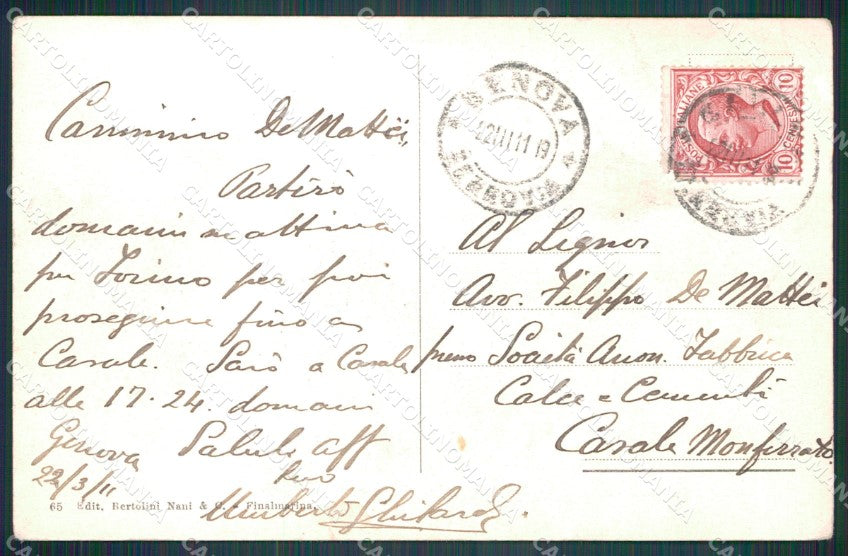 Carissimo De Mattei,
Partirò
domani mattina
per Torino per poi
proseguire fino a
Casale. Sarò a Casale
alle 17.24. domani
Genova Salute aff
22/3/11 tuo
Umberto Ghilardi.
65 Edit. Bertolini Nani & C. - Finalmarina.
GENOVA
FERROVIA
10 POSTE ITALIANE CENTES. 10
FERROVIA
Al Signor
Avv. Filippo De Mattei
presso Società Anon. Fabbrica
Calce e Cementi
Casale Monferrato
CARTOLINOMANIA